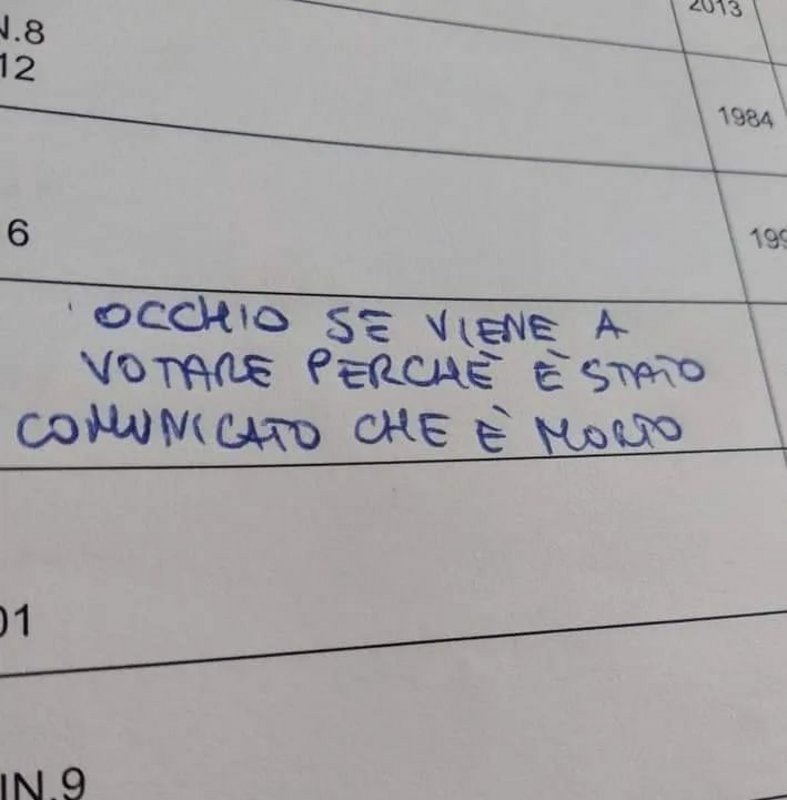 N.8
2013
12
1984
6
199
OCCHIO SE VIENE A
VOTARE PERCHÈ È STATO
COMUNICATO CHE È MORTO
01
IN.9